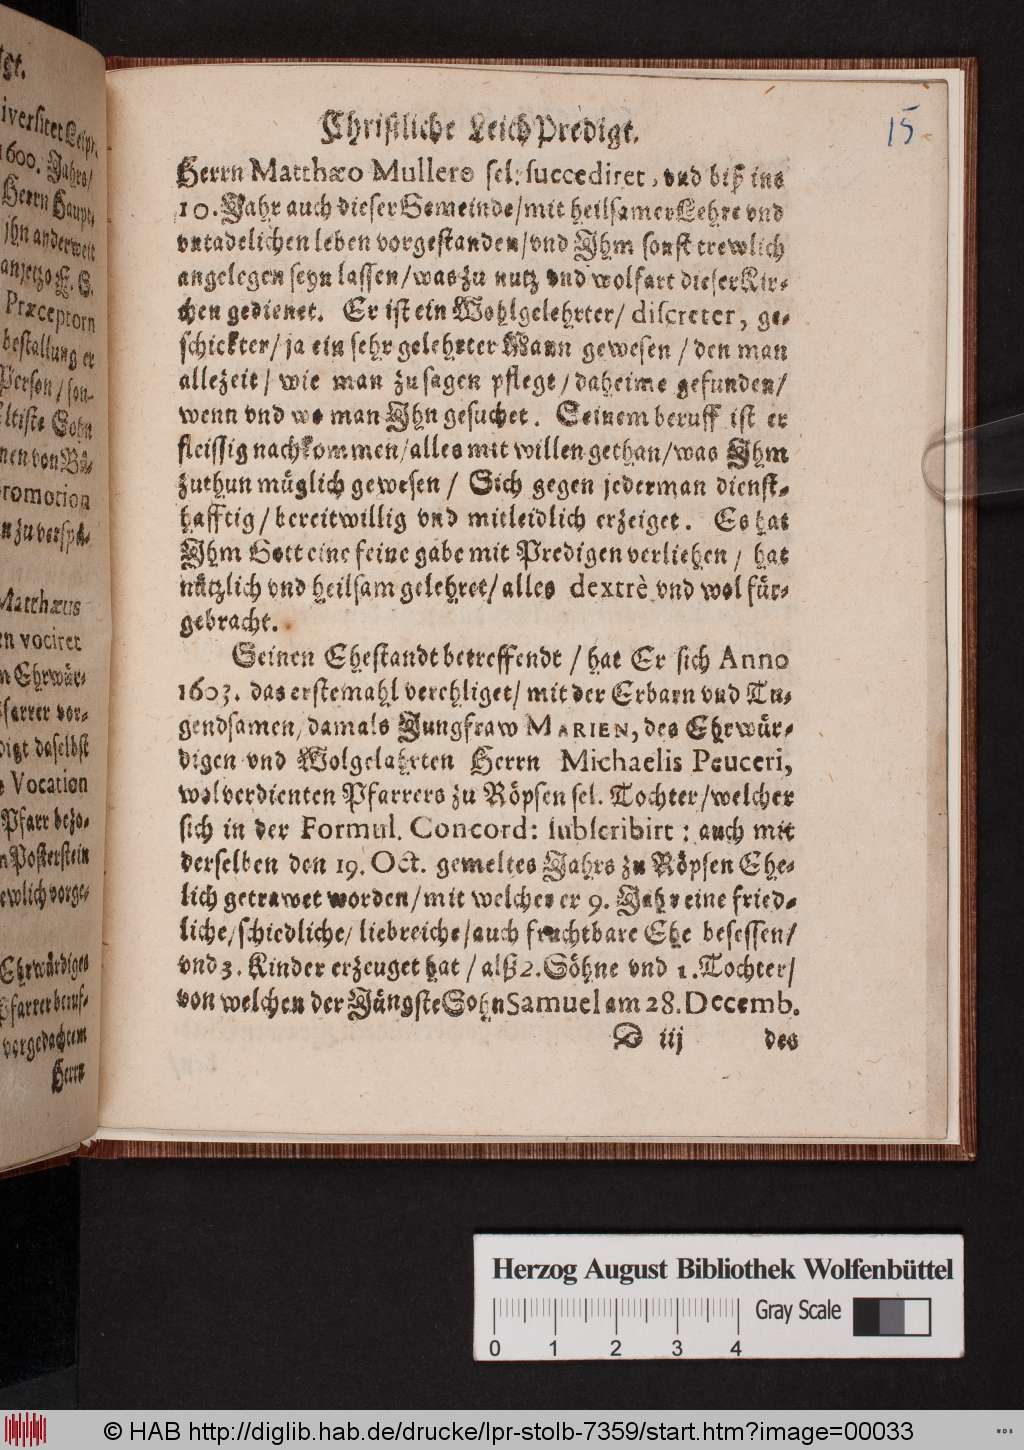 gt.
iversitet Leipz.
1600. Jahrs/
Herrn Haupt-
jhn anderweit
anjetzo E. G.
Præceptorn
bestallung er
Person / son-
ltiste Sohn
nen von Bü-
romotion
n zu verspü-
Matthæus
en vociret
n Ehrwür-
farrer vor-
digt daselbst
Vocation
Pfarr bezo-
n Posterstein
ewlich vorge-
Ehrwürdiges
Pfarrer beruf-
vorgedachtem
Herrn
Christliche LeichPredigt.
15
Herrn Matthæo Mullero sel: succediret, vnd biß ins
10. Jahr auch dieser Gemeinde/ mit heilsamer Lehre vnd
vntadelichen leben vorgestanden/ vnd Jhm sonst trewlich
angelegen seyn lassen/ was zu nutz vnd wolfart dieser Kir-
chen gedienet. Er ist ein Wohlgelehrter/ discreter, ge-
schickter/ ja ein sehr gelehrter Mann gewesen / den man
allezeit/ wie man zusagen pflegt/ daheime gefunden/
wenn vnd wo man Jhn gesuchet. Seinem beruff ist er
fleissig nachkommen/ alles mit willen gethan/ was Jhm
zuthun müglich gewesen / Sich gegen jederman dienst-
hafftig/ bereitwillig vnd mitleidlich erzeiget. Es hat
Jhm Gott eine feine gabe mit Predigen verliehen / hat
nützlich vnd heilsam gelehret/ alles dextrè vnd wol für-
gebracht.
Seinen Ehestandt betreffendt / hat Er sich Anno
1603. das erstemahl verehliget/ mit der Erbarn vnd Tu-
gendsamen/ damals Jungfraw MARIEN, des Ehrwür-
digen vnd Wolgelahrten Herrn Michaelis Peuceri,
wolverdienten Pfarrers zu Röpsen sel. Tochter/ welcher
sich in der Formul. Concord: subscribirt : auch mit
derselben den 19. Oct. gemeltes Jahrs zu Röpsen Ehe-
lich getrawet worden/ mit welcher er 9. Jahr eine fried-
liche/ schiedliche/ liebreiche/ auch fruchtbare Ehe besessen/
vnd 3. Kinder erzeuget hat / alß 2. Söhne vnd 1. Tochter/
von welchen der Jüngste Sohn Samuel am 28. Decemb.
D iij des
Herzog August Bibliothek Wolfenbüttel
Gray Scale
0 1 2 3 4
© HAB http://diglib.hab.de/drucke/lpr-stolb-7359/start.htm?image=00033